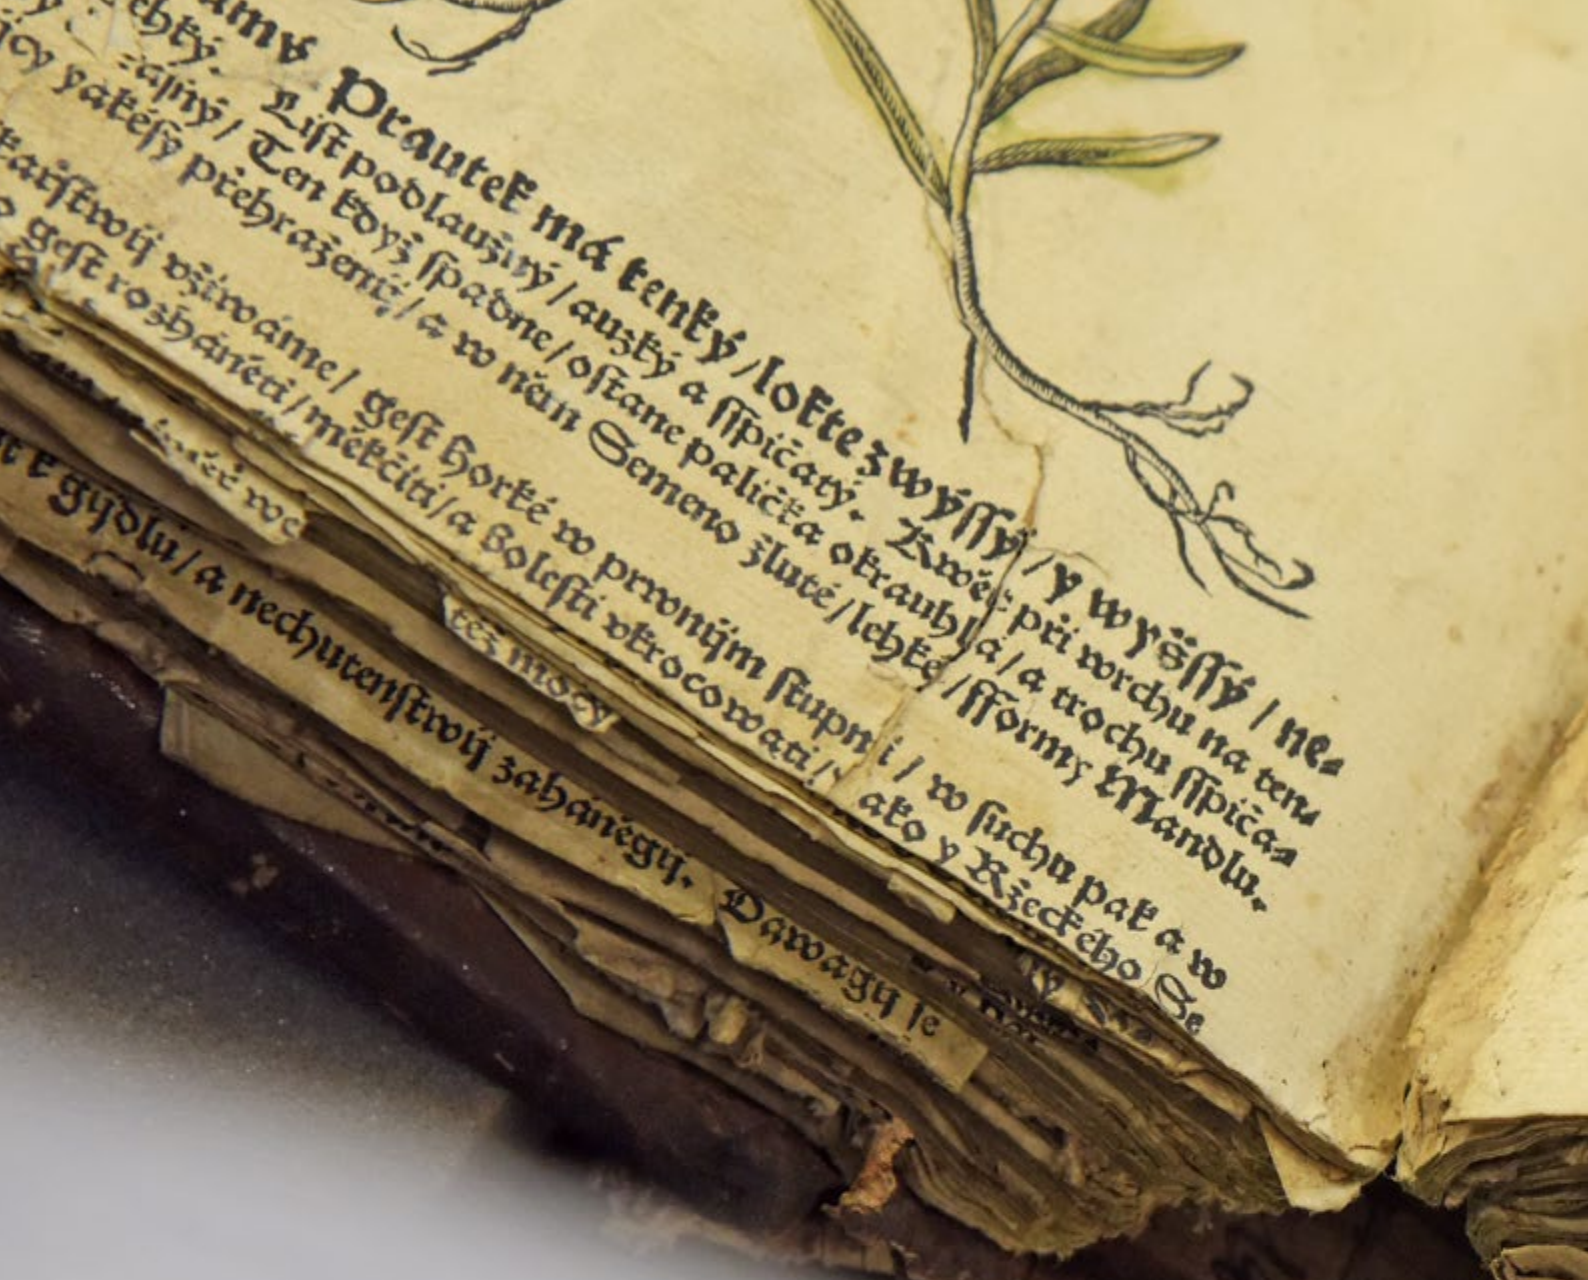 Prautek má tenký / lokte zwýſſý / y wyšſſý / ne⸗
ehký. Liſt podlauzný / auzký a ſſpičatý. Kwět při wrchu na ten⸗
Ten když ſpadne / oſtane palička okrauhlá / a trochu ſſpiča⸗
ycy yakéſy přehraženij / a w něm Semeno žluté / lehké / fformy Mandlu.
kařſtwij vžiwáme / geſt Horké w prwnijm ſtupni / w ſuchu pak a w
geſt rozháněti / měkčiti / a Boleſti vkrocowati / yako y Ržeckého Se
též mocy
gijdlu / a nechutenſtwij zaháněgij. Dawagij ſe